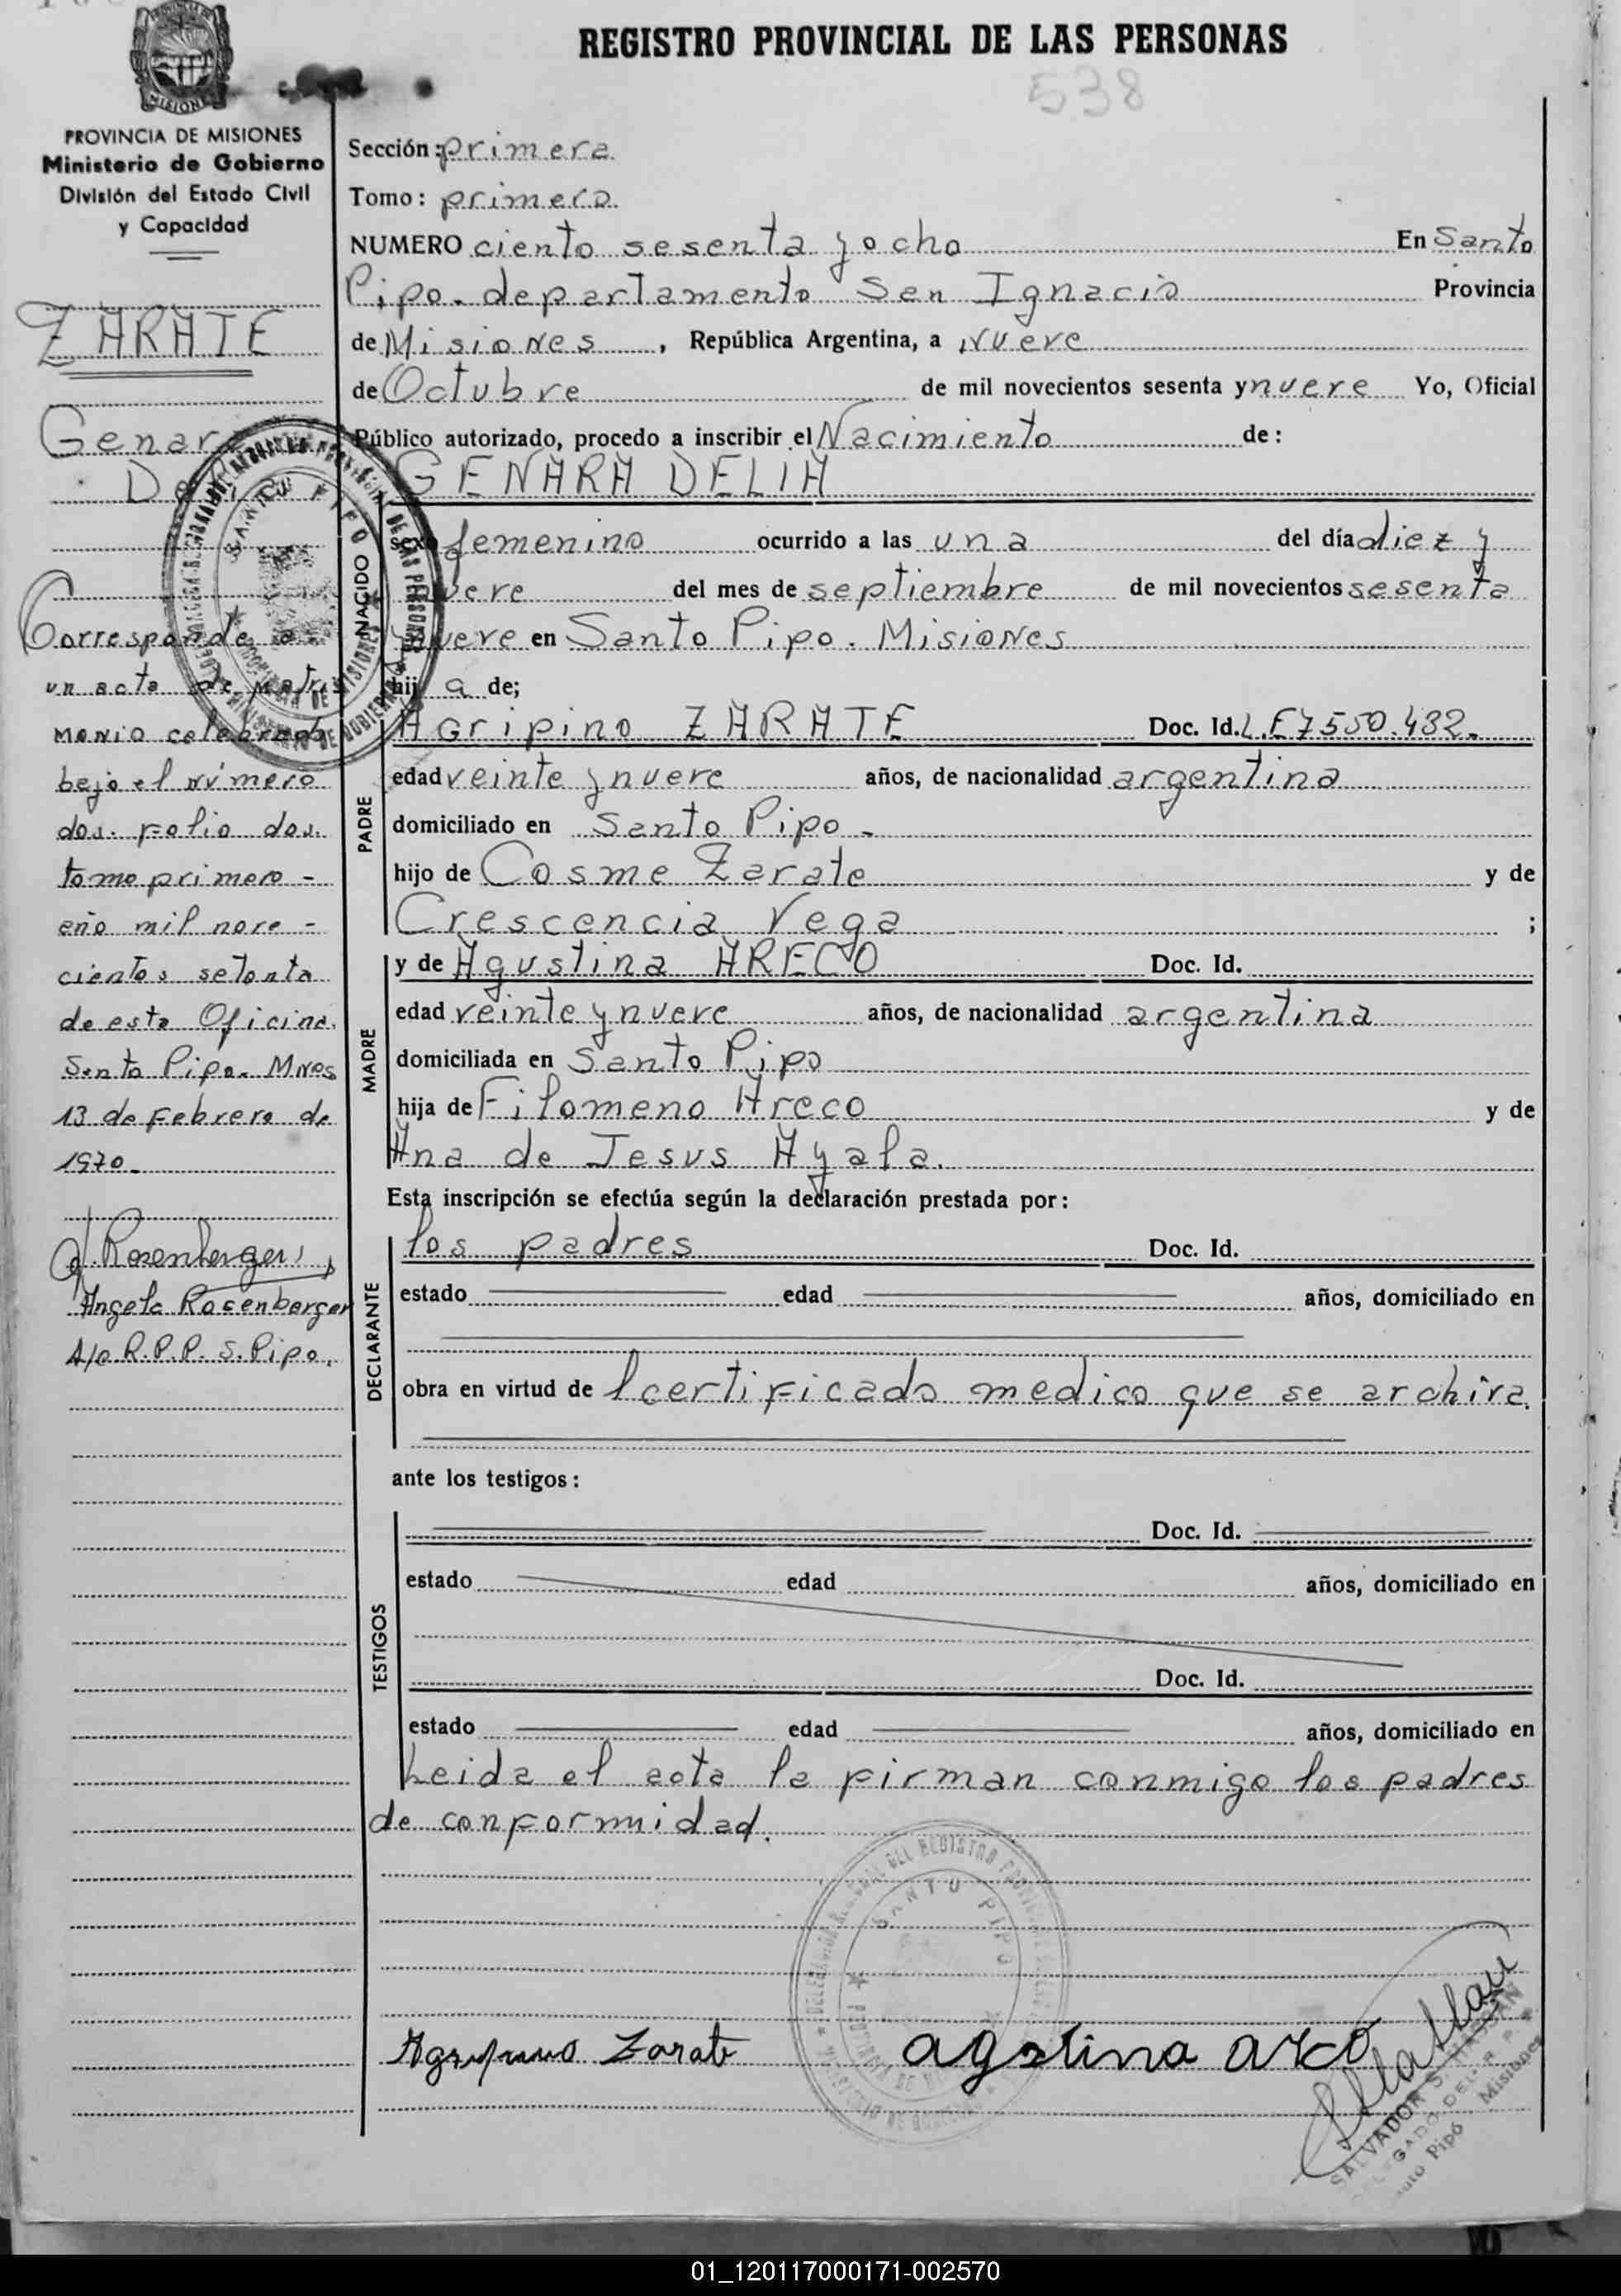 REGISTRO PROVINCIAL DE LAS PERSONAS
538
MISIONES
PROVINCIA DE MISIONES
Ministerio de Gobierno
División del Estado Civil
y Capacidad
ZARATE
Genar
De
Corresponde a
un acta de matri
monio celebrado
bajo el número
dos. folio dos.
tomo primero -
año mil nove -
cientos setenta
de esta Oficina.
Santo Pipo. Mnes
13 de Febrero de
1970.
A. Rosenberger
Angela Rosenberger
A/c R.P.P. S. Pipo.
Sección: primera
Tomo: primero
NUMERO ciento sesenta y ocho En Santo
Pipo. departamento San Ignacio Provincia
de Misiones, República Argentina, a Nueve
de Octubre de mil novecientos sesenta y nueve Yo, Oficial
Público autorizado, procedo a inscribir el Nacimiento de:
GENARA DELIA
NACIDO
sexo femenino ocurrido a las una del día diez y
nueve del mes de septiembre de mil novecientos sesenta
y nueve en Santo Pipo. Misiones
hij a de;
PADRE
Agripino ZARATE Doc. Id. L.E 7550.432.
edad veinte y nueve años, de nacionalidad argentina
domiciliado en Santo Pipo -
hijo de Cosme Zarate y de
Crescencia Vega ;
MADRE
y de Agustina ARECO Doc. Id.
edad veinte y nueve años, de nacionalidad argentina
domiciliada en Santo Pipo
hija de Filomeno Areco y de
Ana de Jesus Ayala.
Esta inscripción se efectúa según la declaración prestada por:
DECLARANTE
los padres Doc. Id.
estado edad años, domiciliado en
obra en virtud de l certificado medico que se archiva.
ante los testigos:
TESTIGOS
Doc. Id.
estado edad años, domiciliado en
Doc. Id.
estado edad años, domiciliado en
Leida el acta la firman conmigo los padres
de conformidad.
SANTO PIPO
Agripino Zarate agostina arco
SALVADOR S. HASSAN
DELEGADO DEL R. P. P.
Santo Pipó Misiones
01_120117000171-002570